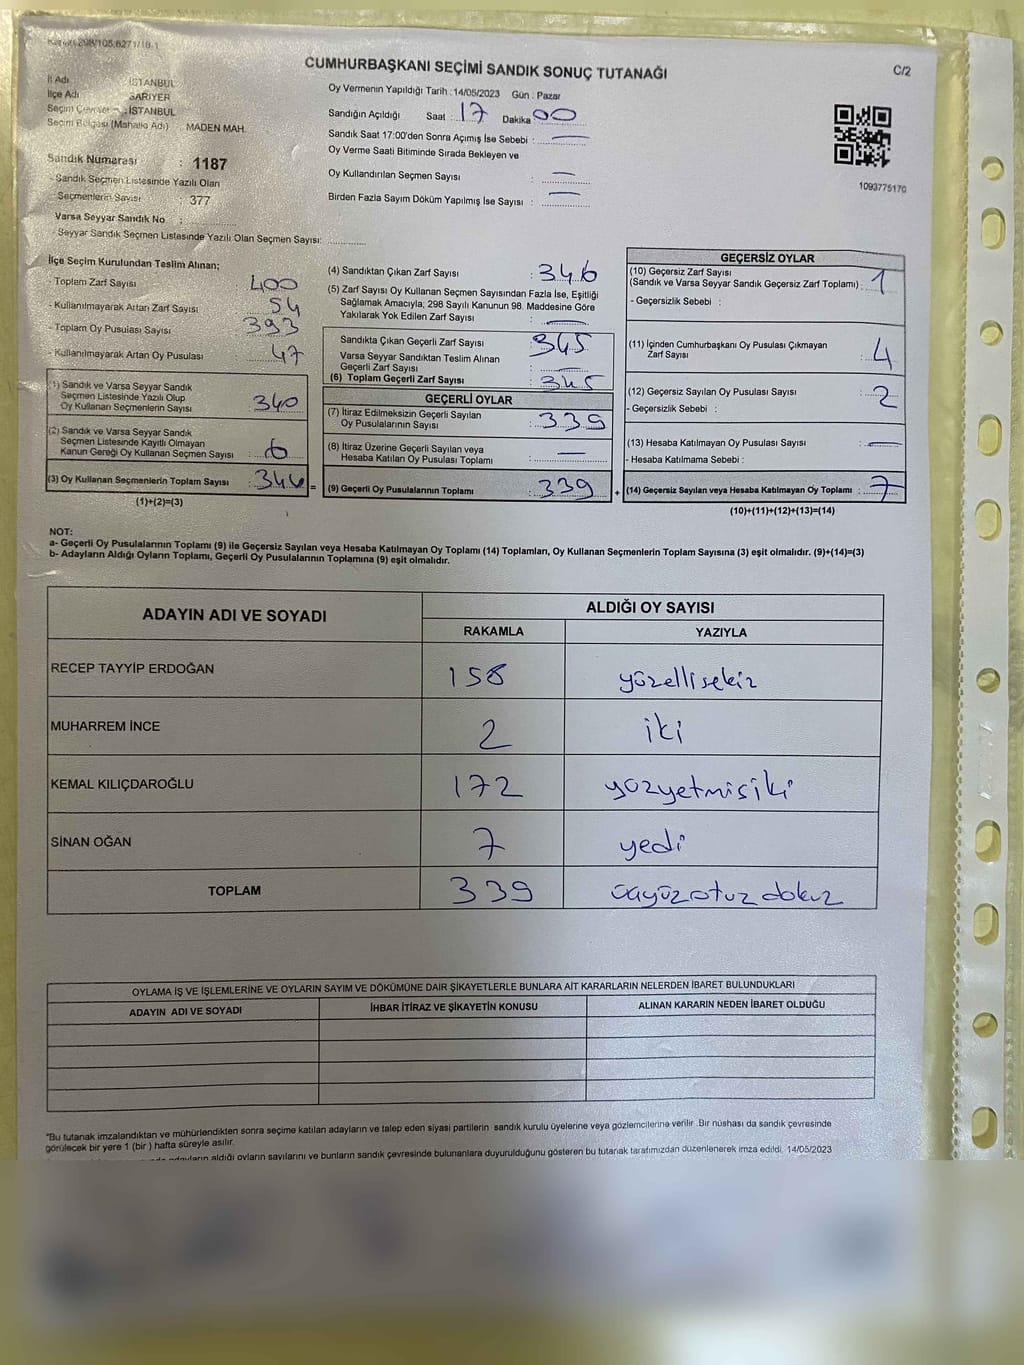 CUMHURBAŞKANI SEÇİMİ SANDIK SONUÇ TUTANAĞI
C/2
İl Adı : İSTANBUL
İlçe Adı : SARIYER
Seçim Çevresi : İSTANBUL
Seçim Bölgesi (Mahalle Adı) MADEN MAH.
Sandık Numarası : 1187
- Sandık Seçmen Listesinde Yazılı Olan
Seçmenlerin Sayısı 377
Varsa Seyyar Sandık No :
- Seyyar Sandık Seçmen Listesinde Yazılı Olan Seçmen Sayısı: ..............
Oy Vermenin Yapıldığı Tarih : 14/05/2023 Gün : Pazar
Sandığın Açıldığı Saat : 17 Dakika 00
Sandık Saat 17:00'den Sonra Açımış İse Sebebi : —
Oy Verme Saati Bitiminde Sırada Bekleyen ve
Oy Kullandırılan Seçmen Sayısı : —
Birden Fazla Sayım Döküm Yapılmış İse Sayısı : —
1093775170
İlçe Seçim Kurulundan Teslim Alınan;
- Toplam Zarf Sayısı 400
- Kullanılmayarak Artan Zarf Sayısı 54
- Toplam Oy Pusulası Sayısı 393
- Kullanılmayarak Artan Oy Pusulası 47
(1) Sandık ve Varsa Seyyar Sandık
Seçmen Listesinde Yazılı Olup
Oy Kullanan Seçmenlerin Sayısı 340
(2) Sandık ve Varsa Seyyar Sandık
Seçmen Listesinde Kayıtlı Olmayan
Kanun Gereği Oy Kullanan Seçmen Sayısı : 6
(3) Oy Kullanan Seçmenlerin Toplam Sayısı : 346 =
(1)+(2)=(3)
(4) Sandıktan Çıkan Zarf Sayısı : 346
(5) Zarf Sayısı Oy Kullanan Seçmen Sayısından Fazla İse, Eşitliği
Sağlamak Amacıyla, 298 Sayılı Kanunun 98. Maddesine Göre
Yakılarak Yok Edilen Zarf Sayısı : —
Sandıkta Çıkan Geçerli Zarf Sayısı : 345
Varsa Seyyar Sandıktan Teslim Alınan
Geçerli Zarf Sayısı : —
(6) Toplam Geçerli Zarf Sayısı : 345
GEÇERLİ OYLAR
(7) İtiraz Edilmeksizin Geçerli Sayılan
Oy Pusulalarının Sayısı : 339
(8) İtiraz Üzerine Geçerli Sayılan veya
Hesaba Katılan Oy Pusulası Toplamı : —
(9) Geçerli Oy Pusulalarının Toplamı : 339 +
GEÇERSİZ OYLAR
(10) Geçersiz Zarf Sayısı
(Sandık ve Varsa Seyyar Sandık Geçersiz Zarf Toplamı) : 1
- Geçersizlik Sebebi :
(11) İçinden Cumhurbaşkanı Oy Pusulası Çıkmayan
Zarf Sayısı : 4
(12) Geçersiz Sayılan Oy Pusulası Sayısı : 2
- Geçersizlik Sebebi :
(13) Hesaba Katılmayan Oy Pusulası Sayısı : —
- Hesaba Katılmama Sebebi :
(14) Geçersiz Sayılan veya Hesaba Katılmayan Oy Toplamı : 7
(10)+(11)+(12)+(13)=(14)
NOT:
a- Geçerli Oy Pusulalarının Toplamı (9) ile Geçersiz Sayılan veya Hesaba Katılmayan Oy Toplamı (14) Toplamları, Oy Kullanan Seçmenlerin Toplam Sayısına (3) eşit olmalıdır. (9)+(14)=(3)
b- Adayların Aldığı Oyların Toplamı, Geçerli Oy Pusulalarının Toplamına (9) eşit olmalıdır.
ADAYIN ADI VE SOYADI ALDIĞI OY SAYISI
RAKAMLA YAZIYLA
RECEP TAYYİP ERDOĞAN 158 yüzellisekiz
MUHARREM İNCE 2 iki
KEMAL KILIÇDAROĞLU 172 yüzyetmişiki
SİNAN OĞAN 7 yedi
TOPLAM 339 üçyüzotuzdokuz
OYLAMA İŞ VE İŞLEMLERİNE VE OYLARIN SAYIM VE DÖKÜMÜNE DAİR ŞİKAYETLERLE BUNLARA AİT KARARLARIN NELERDEN İBARET BULUNDUKLARI
ADAYIN ADI VE SOYADI İHBAR İTİRAZ VE ŞİKAYETİN KONUSU ALINAN KARARIN NEDEN İBARET OLDUĞU
"Bu tutanak imzalandıktan ve mühürlendikten sonra seçime katılan adayların ve talep eden siyasi partilerin sandık kurulu üyelerine veya gözlemcilerine verilir. Bir nüshası da sandık çevresinde
görülecek bir yere 1 (bir) hafta süreyle asılır.
aldığı oyların sayılarını ve bunların sandık çevresinde bulunanlara duyurulduğunu gösteren bu tutanak tarafımızdan düzenlenerek imza edildi. 14/05/2023